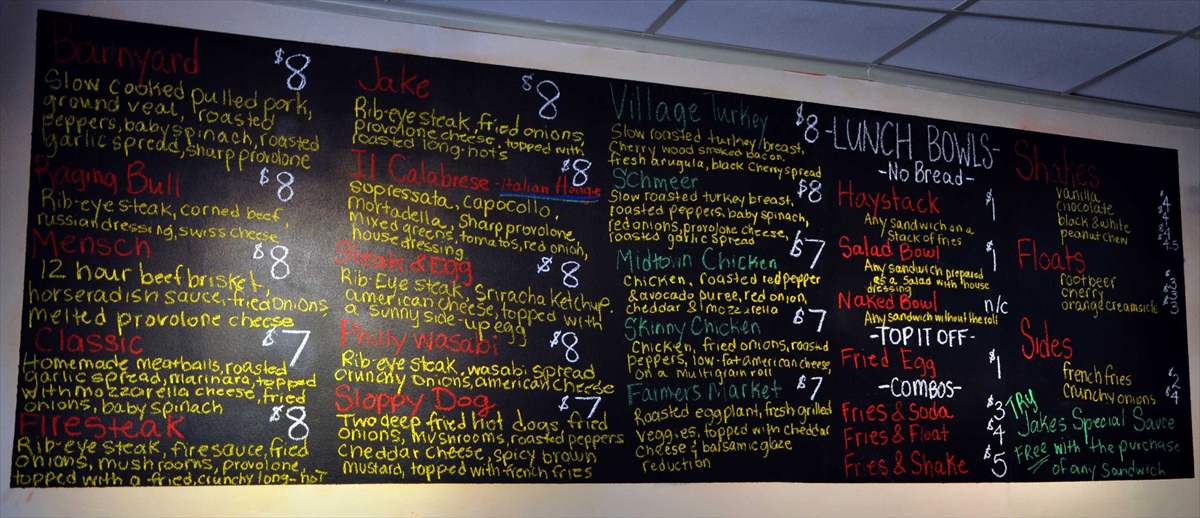 Barnyard $8
Slow cooked pulled pork,
ground veal, roasted
peppers, baby spinach, roasted
garlic spread, sharp provolone
Raging Bull $8
Rib-eye steak, corned beef,
russian dressing, swiss cheese
Mensch $8
12 hour beef brisket,
horseradish sauce, fried onions,
melted provolone cheese
Classic $7
Homemade meatballs, roasted
garlic spread, marinara, topped
with mozzarella cheese, fried
onions, baby spinach
Firesteak $8
Rib-eye steak, firesauce, fried
onions, mushrooms, provolone,
topped with a fried, crunchy long-hot
Jake $8
Rib-eye steak, fried onions
Provolone cheese, topped with
roasted long-hots
Il Calabrese - Italian Hoagie $8
Supressata, capocollo,
mortadella, sharp provolone,
Mixed greens, tomatos, red onion,
house dressing
Steak & Egg $8
Rib-Eye steak, Sriracha ketchup,
american cheese, topped with
a sunny side-up egg
Philly Wasabi $8
Rib-eye steak, wasabi spread
crunchy onions, american cheese
Sloppy Dog $7
Two deep fried hot dogs, fried
onions, mushrooms, roasted peppers
cheddar cheese, spicy brown
mustard, topped with french fries
Village Turkey $8
Slow roasted turkey breast,
Cherry wood smoked bacon,
fresh arugula, black cherry spread
Schmeer $8
Slow roasted turkey breast,
roasted peppers, baby spinach,
red onions, provolone cheese,
roasted garlic spread
Midtown Chicken $7
Chicken, roasted red pepper
& avocado puree, red onion,
cheddar & mozzarella
Skinny Chicken $7
Chicken, fried onions, roasted
peppers, low-fat american cheese,
on a multigrain roll
Farmers Market $7
Roasted eggplant, fresh grilled
veggies, topped with cheddar
cheese & balsamic glaze
reduction
-LUNCH BOWLS-
-No Bread-
Haystack $1
Any Sandwich on a
Stack of fries
Salad Bowl $1
Any sandwich prepared
as a Salad with house
dressing
Naked Bowl n/c
Any sandwich without the roll
-TOP IT OFF-
Fried Egg $1
-COMBOS-
Fries & Soda $3
Fries & Float $4
Fries & Shake $5
Shakes
vanilla $4
chocolate $4
black & white $4
peanut chew 4.5
Floats
rootbeer $3
cherry $3
orange creamsicle $3
Sides
french fries $2
crunchy onions $4
TRY
Jakes Special Sauce
FREE with the purchase
of any Sandwich